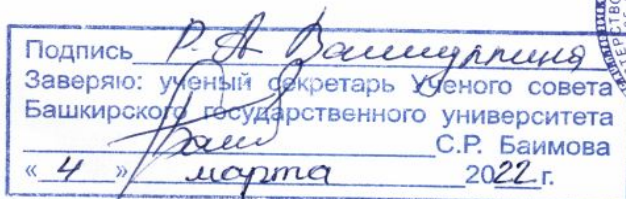 Подпись Р. А. Вашуллина
Заверяю: ученый секретарь Ученого совета
Башкирского государственного университета
С.Р. Баимова
« 4 » марта 2022 г.